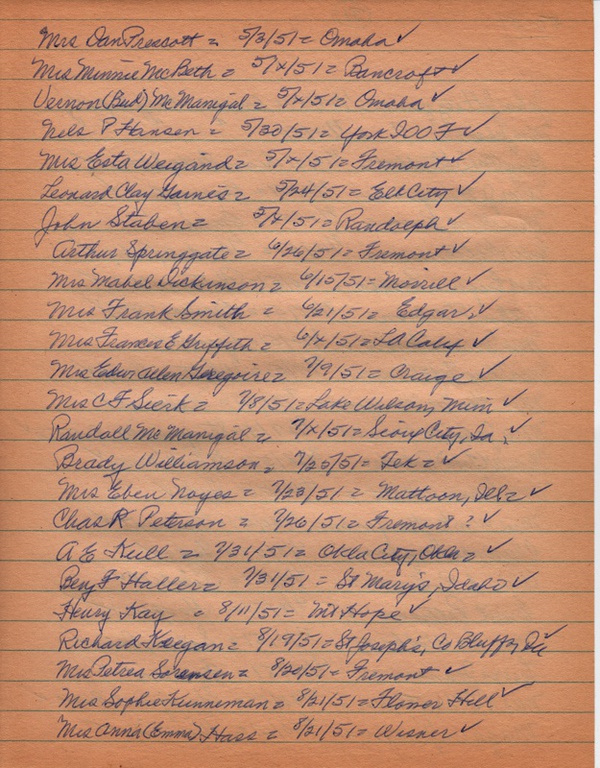 Mrs Dan Prescott = 5/3/51 = Omaha ✓
Mrs Minnie McBeth = 5/x/51 = Bancroft ✓
Vernon (Bud) McManigal = 5/x/51 = Omaha ✓
Nels P Hansen = 5/30/51 = York IOOF ✓
Mrs Esta Weigand = 5/x/51 = Fremont ✓
Leonard Clay Garnes = 5/24/51 = Elk City ✓
John Staben = 5/x/51 = Randolph ✓
Arthur Springgate = 6/26/51 = Fremont ✓
Mrs Mabel Dickinson = 6/15/51 = Morrill ✓
Mrs Frank Smith = 6/21/51 = Edgar, ✓
Mrs Frances E Griffeth = 6/x/51 = LA Calif ✓
Mrs Allen Gregoire = 7/9/51 = Craige ✓
Mrs C F Sierk = 7/8/51 = Lake Wilson, Minn ✓
Randall McManigal = 7/x/51 = Sioux City, Ia. ✓
Brady Williamson = 7/25/51 = Tek = ✓
Mrs Eben Noyes = 7/23/51 = Mattoon, Ill = ✓
Chas R Peterson = 7/26/51 = Fremont ? ✓
A E Kull = 7/31/51 = Okla City, Okla = ✓
Benj F Haller = 7/31/51 = St Mary's, Idaho ✓
Henry Kay = 8/11/51 = Mt Hope ✓
Richard Keegan = 8/19/51 = St Joseph's, Co Bluffs, Ia
Mrs Petrea Sorensen = 8/20/51 = Fremont ✓
Mrs Sophie Kunneman = 8/21/51 = Flower Hill ✓
Mrs Anna (Emma) Hass = 8/21/51 = Wisner ✓